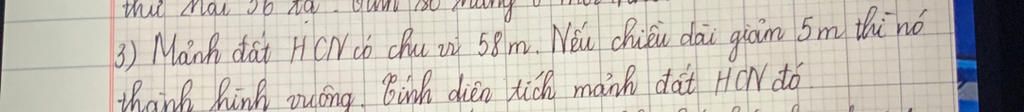 thu
3) Mảnh đất HCN có chu vi 58m. Nếu chiều dài giảm 5m thì nó
thành hình vuông. Tính diện tích mảnh đất HCN đó.